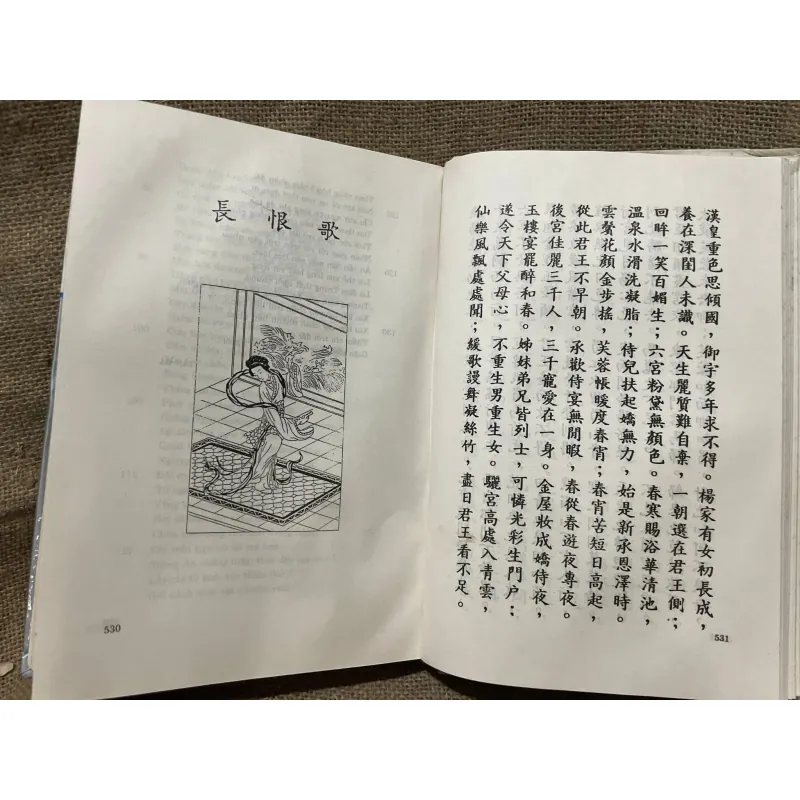 長恨歌
530
漢皇重色思傾國，御宇多年求不得。楊家有女初長成，
養在深閨人未識。天生麗質難自棄，一朝選在君王側；
回眸一笑百媚生；六宮粉黛無顏色。春寒賜浴華清池，
溫泉水滑洗凝脂；侍兒扶起嬌無力，始是新承恩澤時。
雲鬢花顏金步搖，芙蓉帳暖度春宵；春宵苦短日高起，
從此君王不早朝。承歡侍宴無閒暇，春從春遊夜專夜。
後宮佳麗三千人，三千寵愛在一身。金屋妝成嬌侍夜，
玉樓宴罷醉和春。姊妹弟兄皆列士，可憐光彩生門戶；
遂令天下父母心，不重生男重生女。驪宮高處入青雲，
仙樂風飄處處聞；緩歌謾舞凝絲竹，盡日君王看不足。
531